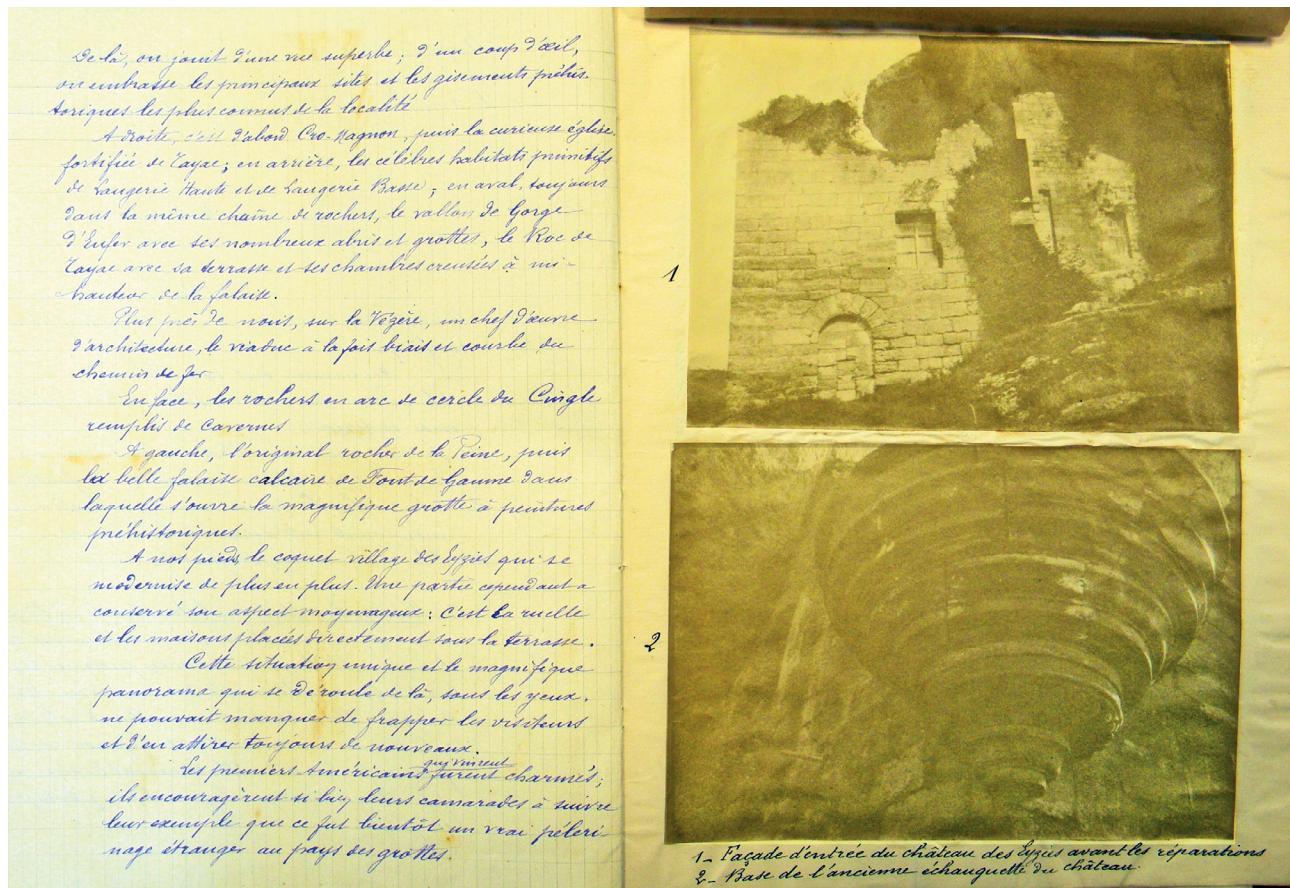 De là, on jouit d'une vue superbe; d'un coup d'œil,
on embrasse les principaux sites et les gisements préhis-
toriques les plus connus de la localité
A droite, c'est d'abord Cro-Magnon, puis la curieuse église
fortifiée de Tayac; en arrière, les célèbres habitats primitifs
de Laugerie Haute et de Laugerie Basse; en aval, toujours
dans la même chaîne de rochers, le vallon de Gorge
d'Enfer avec ses nombreux abris et grottes, le Roc de
Tayac avec sa terrasse et ses chambres creusées à mi-
hauteur de la falaise.
Plus près de nous, sur la Vézère, un chef d'œuvre
d'architecture, le viaduc à la fois biais et courbe du
chemin de fer
En face, les rochers en arc de cercle du Cingle
remplis de cavernes
A gauche, l'original rocher de la Peine, puis
la belle falaise calcaire de Font de Gaume dans
laquelle s'ouvre la magnifique grotte à peintures
préhistoriques.
A nos pieds, le coquet village des Eyzies qui se
modernise de plus en plus. Une partie cependant a
conservé son aspect moyenageux: c'est la ruelle
et les maisons placées directement sous la terrasse.
Cette situation unique et le magnifique
panorama qui se déroule de là, sous les yeux,
ne pouvait manquer de frapper les visiteurs
et d'en attirer toujours de nouveaux.
qui vinrent
Les premiers Américains furent charmés;
ils encouragèrent si bien leurs camarades à suivre
leur exemple que ce fut bientôt un vrai péleri-
nage étranger au pays des grottes.
1
2
1- Façade d'entrée du château des Eyzies avant les réparations
2- Base de l'ancienne échauguette du château